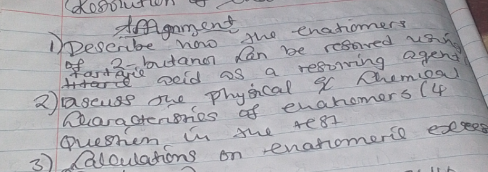 (Resolution of
Assignment
1) Describe how the enatiomers
of 2-butanol can be resolved using
tartaric acid as a resolving agent
2) Discuss the physical & chemical
Characteristics of enatiomers (4
question in the test
3) Calculations on enatiomeric excess